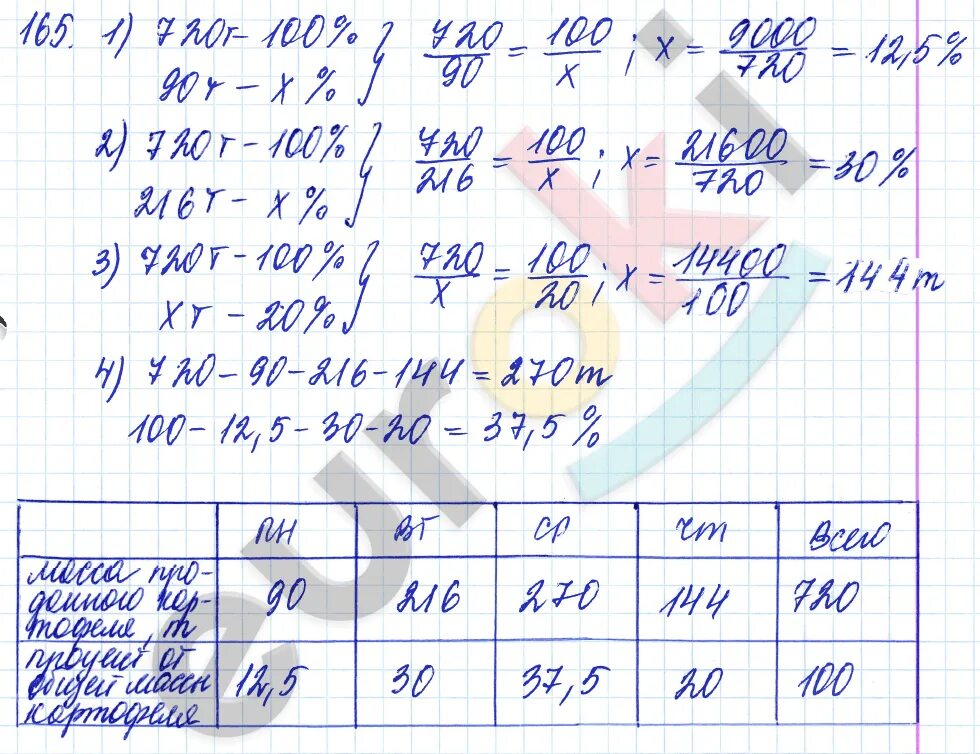 165. 1) 720т - 100% } 720/90 = 100/x ; x = 9000/720 = 12,5%
90т - x%
2) 720т - 100% } 720/216 = 100/x ; x = 21600/720 = 30%
216т - x%
3) 720т - 100% } 720/x = 100/20 ; x = 14400/100 = 144т
xт - 20%
4) 720 - 90 - 216 - 144 = 270т
100 - 12,5 - 30 - 20 = 37,5%
ПН ВТ СР ЧТ Всего
масса про-
данного кар-
тофеля, т 90 216 270 144 720
процент от
общей массы 12,5 30 37,5 20 100
картофеля
euroki